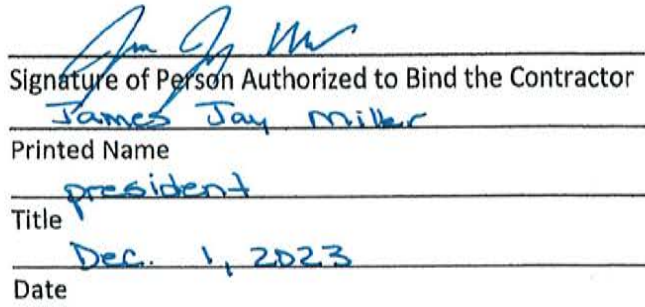 Signature of Person Authorized to Bind the Contractor
James Jay Miller
Printed Name
president
Title
Dec. 1, 2023
Date